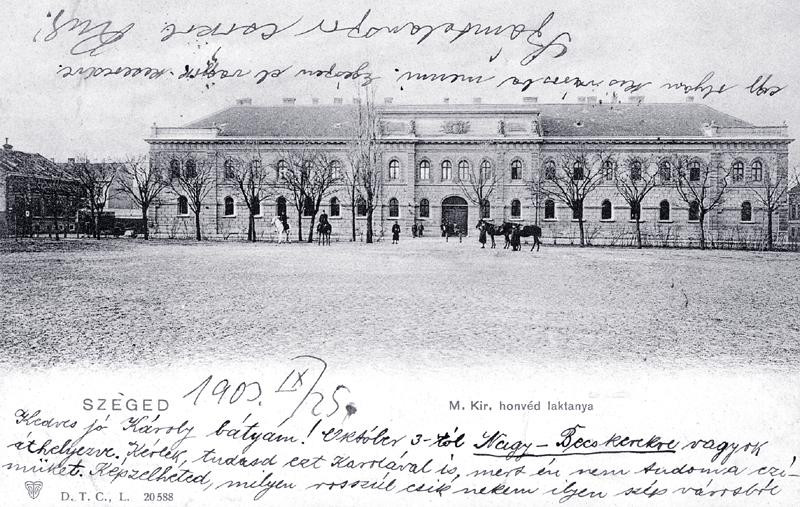 SZEGED 1903. IX/25.
M. Kir. honvéd laktanya
Kedves jó Károly bátyám! Október 3-tól Nagy-Becskerekre vagyok
áthelyezve. Kérlek, tudasd ezt Karolával is, mert én nem tudom a czí-
müket. Képzelheted, milyen rosszúl esik nekem ilyen szép városból
D. T. C., L. 20588
egy olyan kis városba menni. Egészen el vagyok keseredve.
Számtalanszor csókol